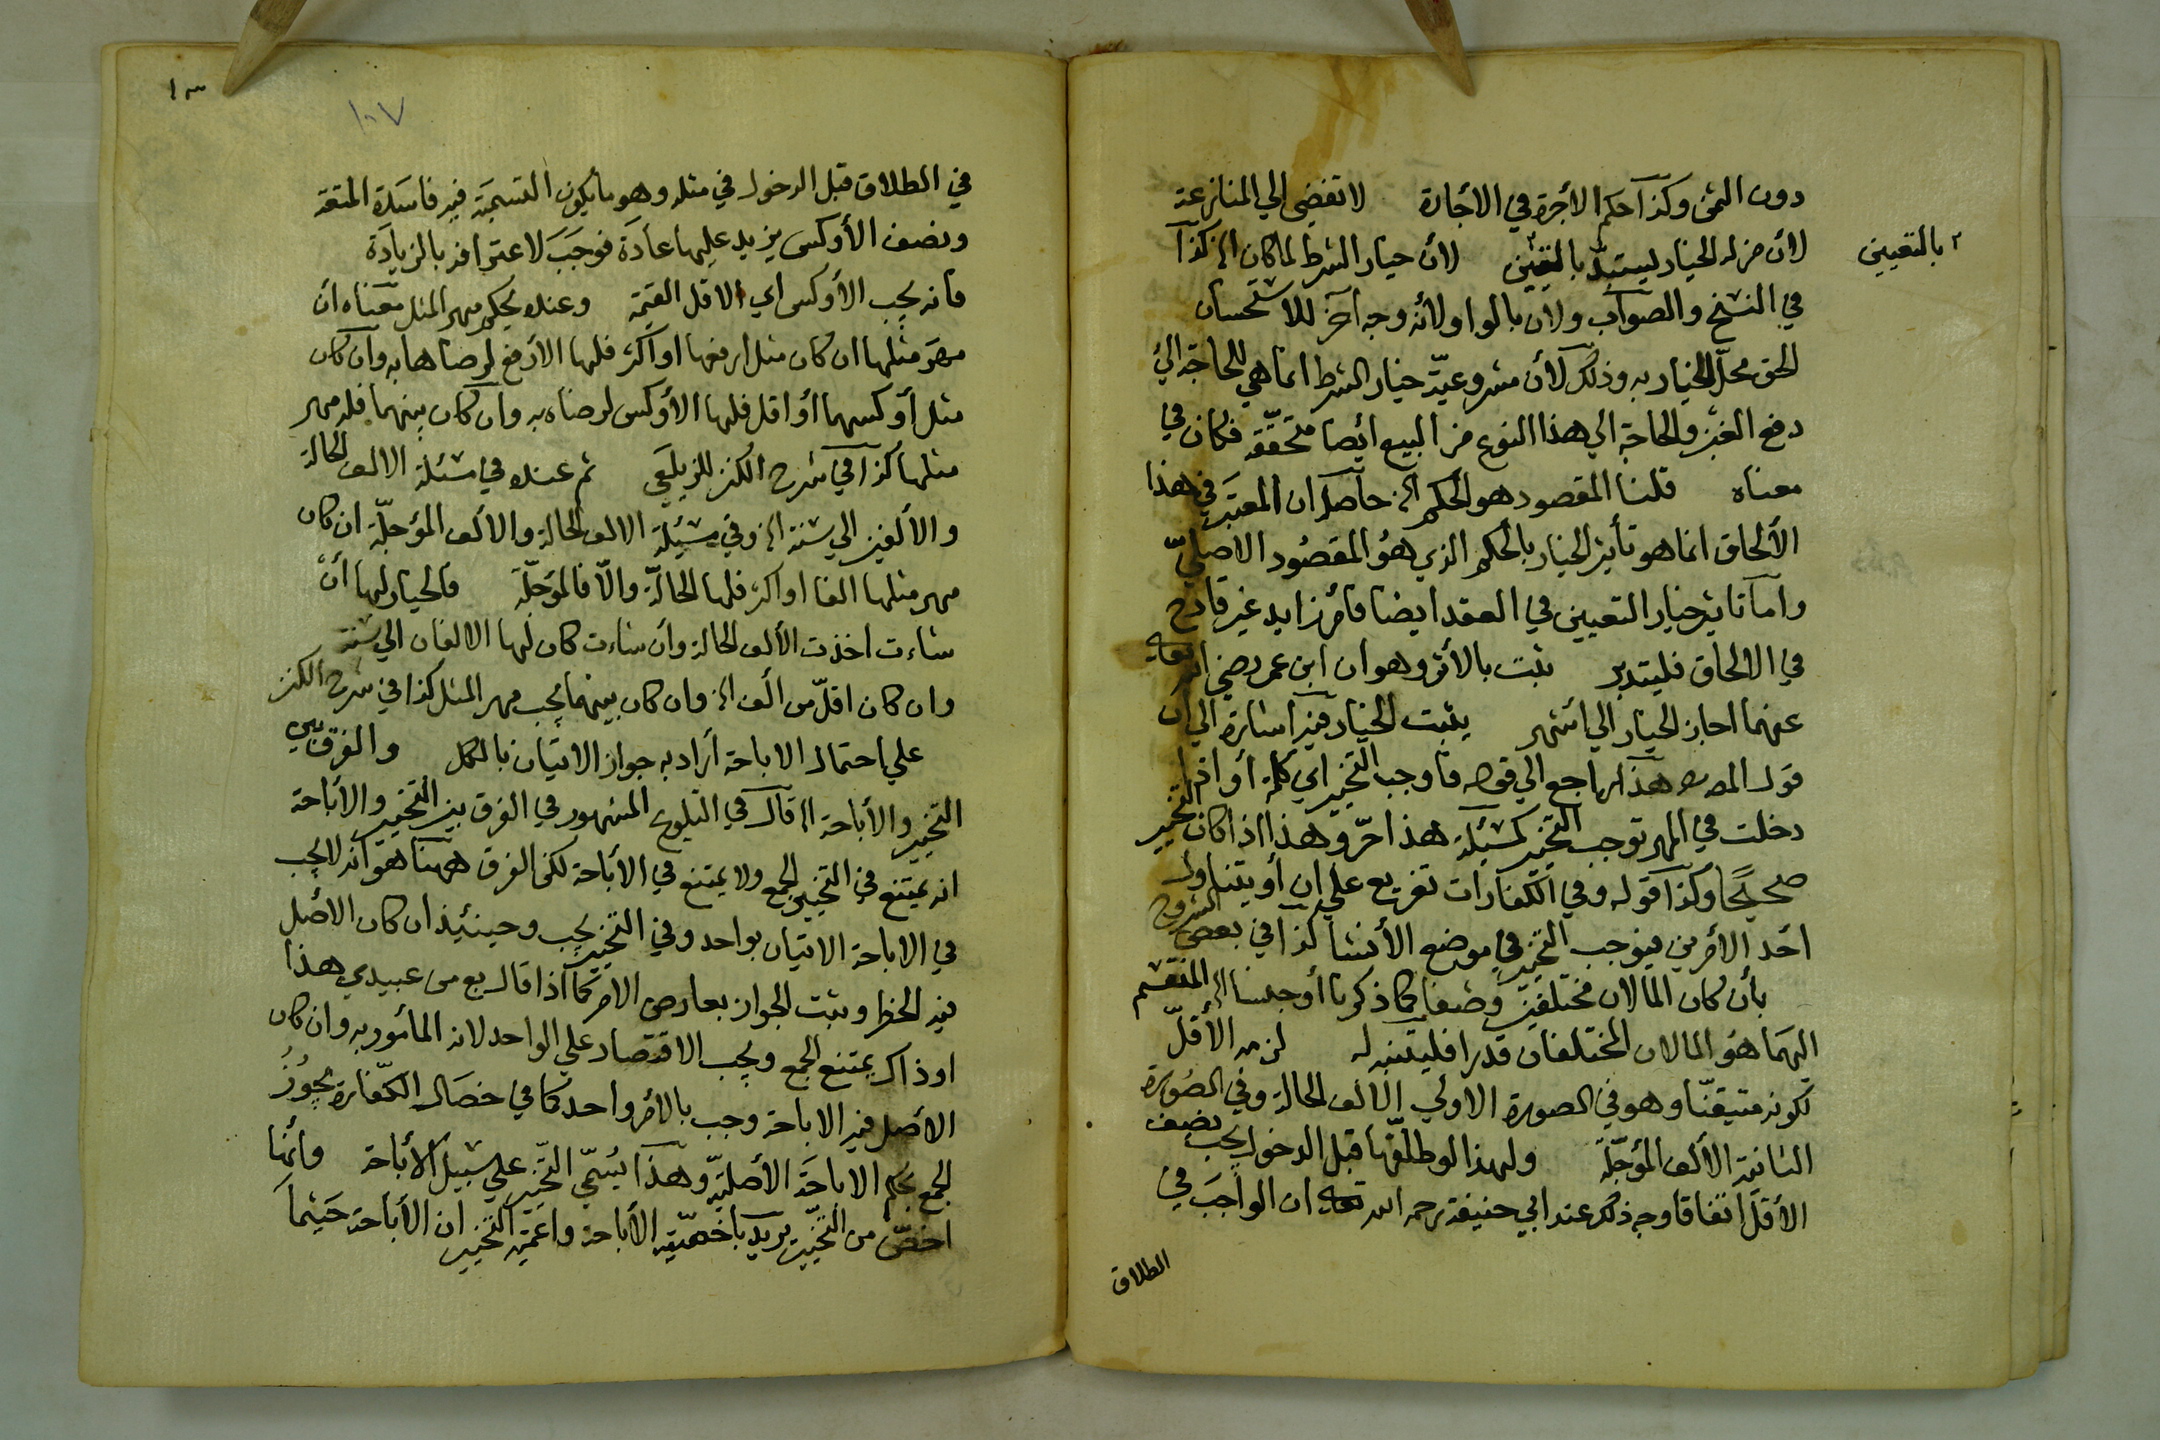 دون الثمن وكذا حكم الأجرة في الأجارة لا تفضي الي المنازعة
لأن من له الخيار يستبدّ بالتعيين لأن خيار الشرط لما كان الخ كذا
٢ بالتعيين
في النسخ والصواب ولأن بالواو لأنه وجه آخر للاستحسان
الحق محلّ الخيار به وذلك لأن مشروعيّة خيار الشرط انما هي للحاجة الي
دفع الغبن والحاجة الي هذا النوع من البيع ايضا متحقّقة فكان في
معناه قلنا المقصود هو الحكم الخ حاصله ان المعتبر في هذا
الألحاق انما هو تأثير الخيار بالحكم الذي هو المقصود الاصليّ
واما تاثير خيار التعيين في العقد ايضا فأمر زايد غير قادح
في الالحاق فليتدبر ثبت بالأثر وهو ان ابن عمر رضي الله تعالي
عنهما اجاز الخيار الي اشهر يثبت الخيار فيه اشارة الي ان
قول المص هذا راجع الي قوله فأوجب التخيير اي كلمة أو اذا
دخلت في المهر توجب التخيير كمسئلة هذا حرّ وهذا اذا كان التخيير
صحيحًا وكذا قوله وفي الكفارات تفريع علي ان أو يتناول
احد الأمرين فيوجب التخيير في موضع الأنشا كذا في بعض الشروح
بأن كان المالان مختلفين وصفا كما ذكرنا أو جنسا الخ المنقسم
اليهما هو المالان المختلفان قدرا فليتنبه له لزمه الأقلّ
لكونه متيقنّا وهو في الصورة الاولي الالف الحالة وفي الصورة
الثانية الألف المؤجّلة ولهذا لو طلّقها قبل الدخول يجب نصف
الأقل اتفاقا وجه ذلك عند ابي حنيفة رحمه الله تعالي ان الواجب في
الطلاق
١٣
١٠٧
في الطلاق قبل الدخول في مثله وهو ما يكون التسمية فيه فاسدة المتعة
ونصف الأوكس يزيد عليها عادة فوجب لاعترافه بالزيادة
فانه يجب الأوكس اي الاقل القيمة وعنده يحكم مهر المثل معناه ان
مهر مثلها ان كان مثل ارفعها او اكثر فلها الارفع لرضاها به وان كان
مثل أوكسهما أو اقل فلها الأوكس لرضاه به وان كان بينهما فله مهر
مثلها كذا في شرح الكنز للزيلعي ثم عنده في مسئلة الالف الحالة
والألفين الي سنة الخ وفي مسئلة الالف الحالة والألف المؤجلّة ان كان
مهر مثلها الفا او اكثر فلها الحالّة والّا فالمؤجّلة فالخيار لها أن
شاءت اخذت الألف الحالة وان شاءت كان لها الالفان الي سنة
وان كان اقلّ من الف الخ وان كان بينهما يجب مهر المثل كذا في شرح الكنز
علي احتمال الاباحة أراد به جواز الاتيان بالكل والفرق بين
التخيير والأباحة الخ قال في التلويح المشهور في الفرق بين التخيير والأباحة
انه يمتنع في التخيير الجمع ولا يمتنع في الأباحة لكن الفرق ههنا هو انه لا يجب
في الاباحة الاتيان بواحد وفي التخيير يجب وحينئذ ان كان الأصل
فيه الحظر وثبت الجواز بعارض الامر كما اذا قال بع من عبيدي هذا
او ذاك يمتنع الجمع ويجب الاقتصار علي الواحد لانه المأمور به وان كان
الأصل فيه الاباحة وجب بالأمر واحد كما في خصال الكفّارة يجوز
الجمع بحكم الاباحة الأصليّة وهذا يسّمي التخيير علي سبيل الأباحة وأنها
اخصّ من التخيير يريد باخصّية الأباحة واعميّة التخيير ان الأباحة حيثما